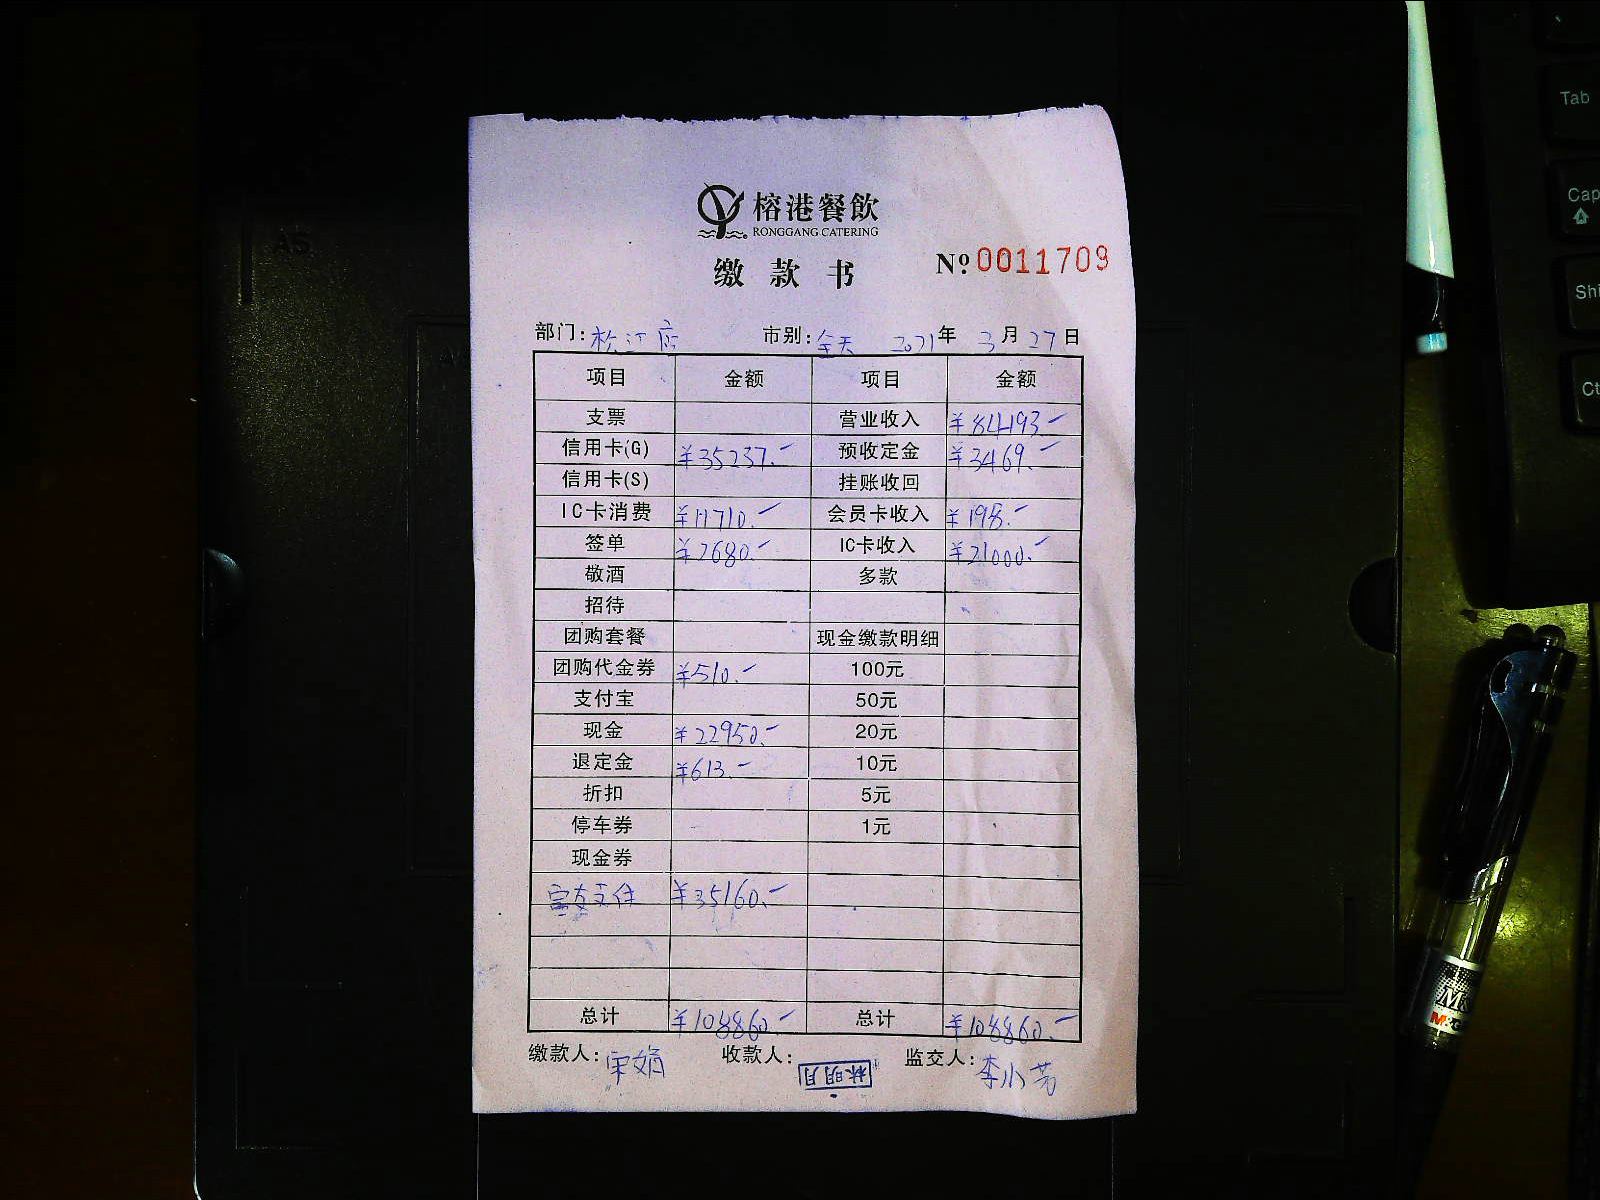 榕港餐飲
RONGGANG CATERING
缴款书
№ 0011709
部门: 松江店 市别: 全天 2021年 3月 27日
项目 金额 项目 金额
支票 营业收入 ¥84193.-
信用卡(G) ¥35237.- 预收定金 ¥3469.-
信用卡(S) 挂账收回
IC卡消费 ¥11710.- 会员卡收入 ¥198.-
签单 ¥2680.- IC卡收入 ¥21000.-
敬酒 多款
招待
团购套餐 现金缴款明细
团购代金券 ¥510.- 100元
支付宝 50元
现金 ¥22950.- 20元
退定金 ¥613.- 10元
折扣 5元
停车券 1元
现金券
富友支付 ¥35160.-
总计 ¥108860.- 总计 ¥108860.-
缴款人: 宋娟 收款人: 林明月 监交人: 李小芳
A5
Tab
Cap
Shi
Ct